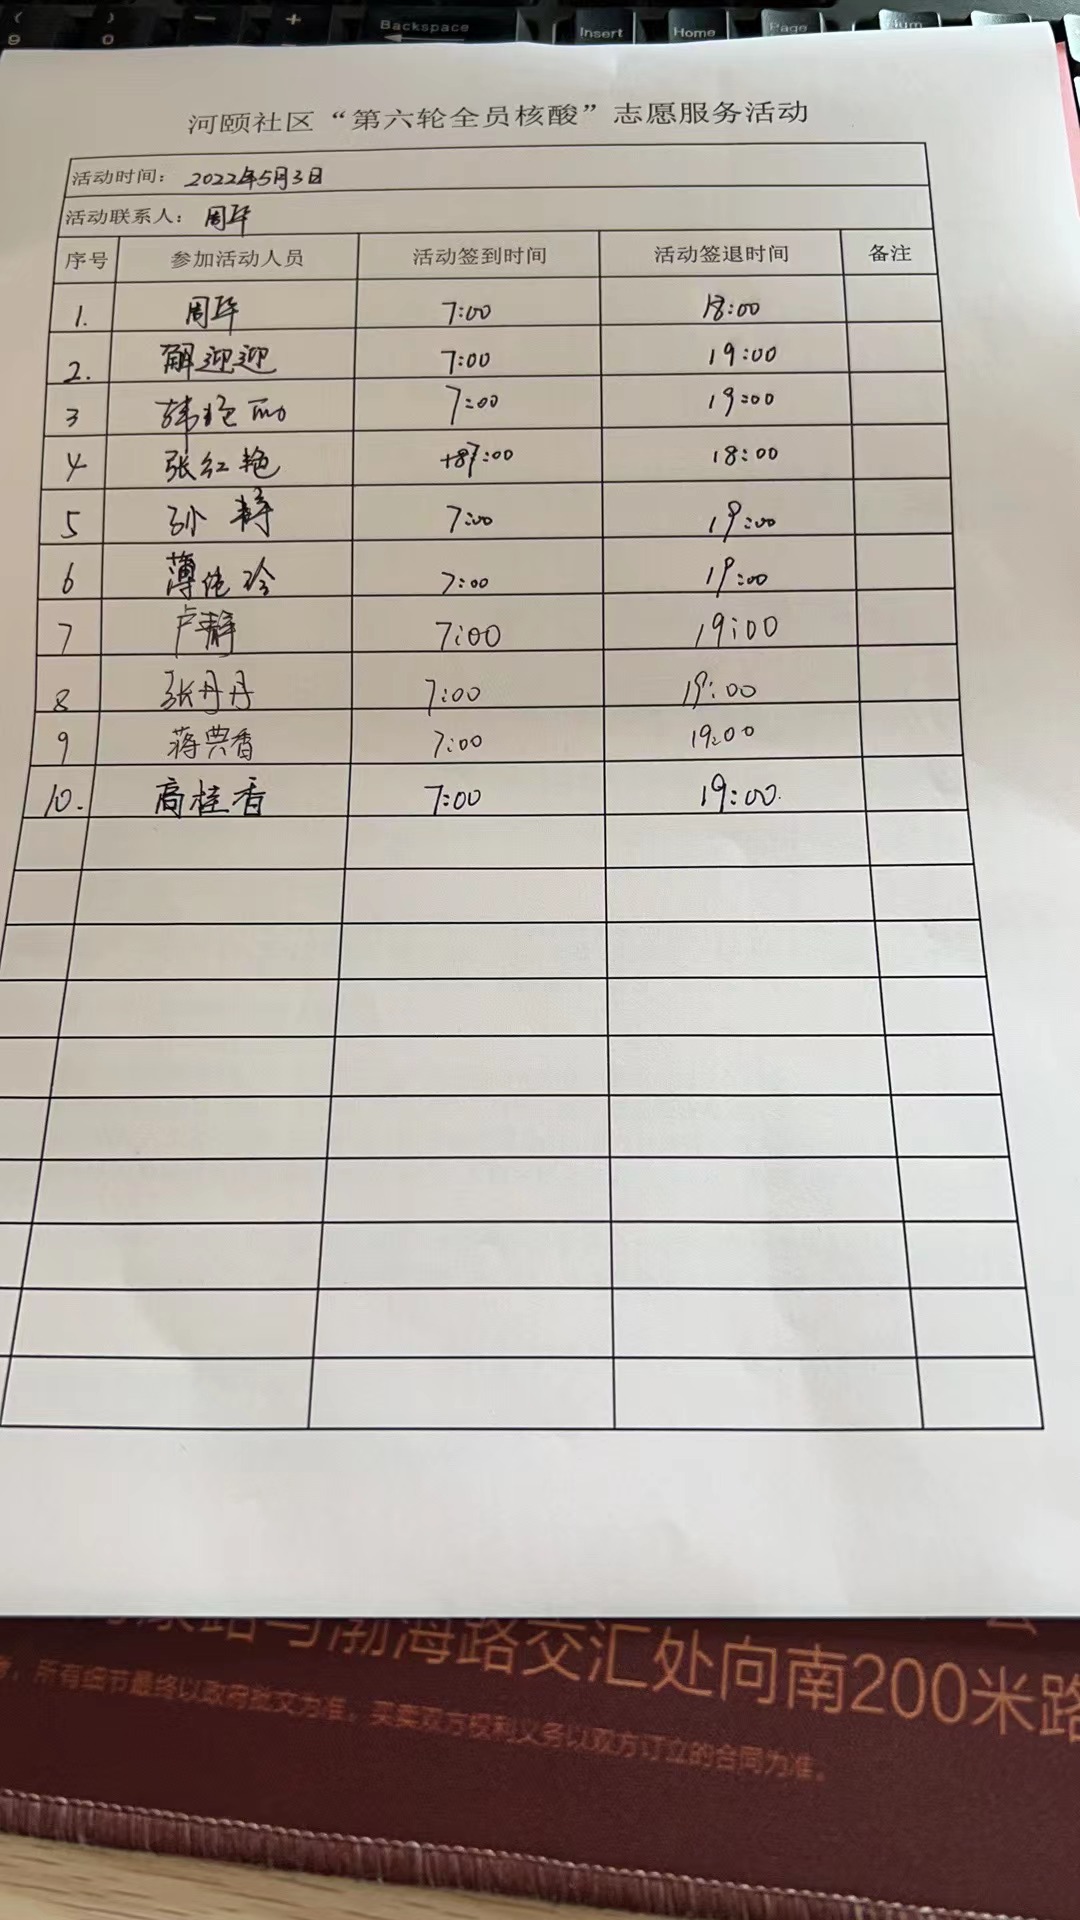 Backspace
Insert
Home
Page
Num
河颐社区“第六轮全员核酸”志愿服务活动
活动时间：2022年5月3日
活动联系人：周华
序号 参加活动人员 活动签到时间 活动签退时间 备注
1. 周华 7:00 18:00
2. 解迎迎 7:00 19:00
3 韩 7:00 19:00
4 张红艳 7:00 18:00
5 孙 7:00 19:00
6 薄 玲 7:00 19:00
7 卢静 7:00 19:00
8 张丹丹 7:00 19:00
9 蒋典香 7:00 19:00
10. 高桂香 7:00 19:00.
路与渤海路交汇处向南200米路
，所有细节最终以政府批文为准，买卖双方权利义务以双方订立的合同为准。